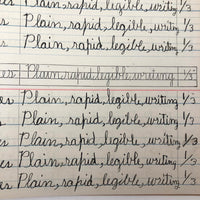 Plain, rapid, legible, writing 1/3
Plain, rapid, legible, writing 1/3
Plain, rapid, legible, writing 1/3
es Plain, rapid, legible, writing 1/3
es Plain, rapid, legible, writing 1/3
es Plain, rapid, legible, writing 1/3
es Plain, rapid, legible, writing 1/3
es Plain, rapid, legible, writing 1/3
es Plain, rapid, legible, writing 1/3